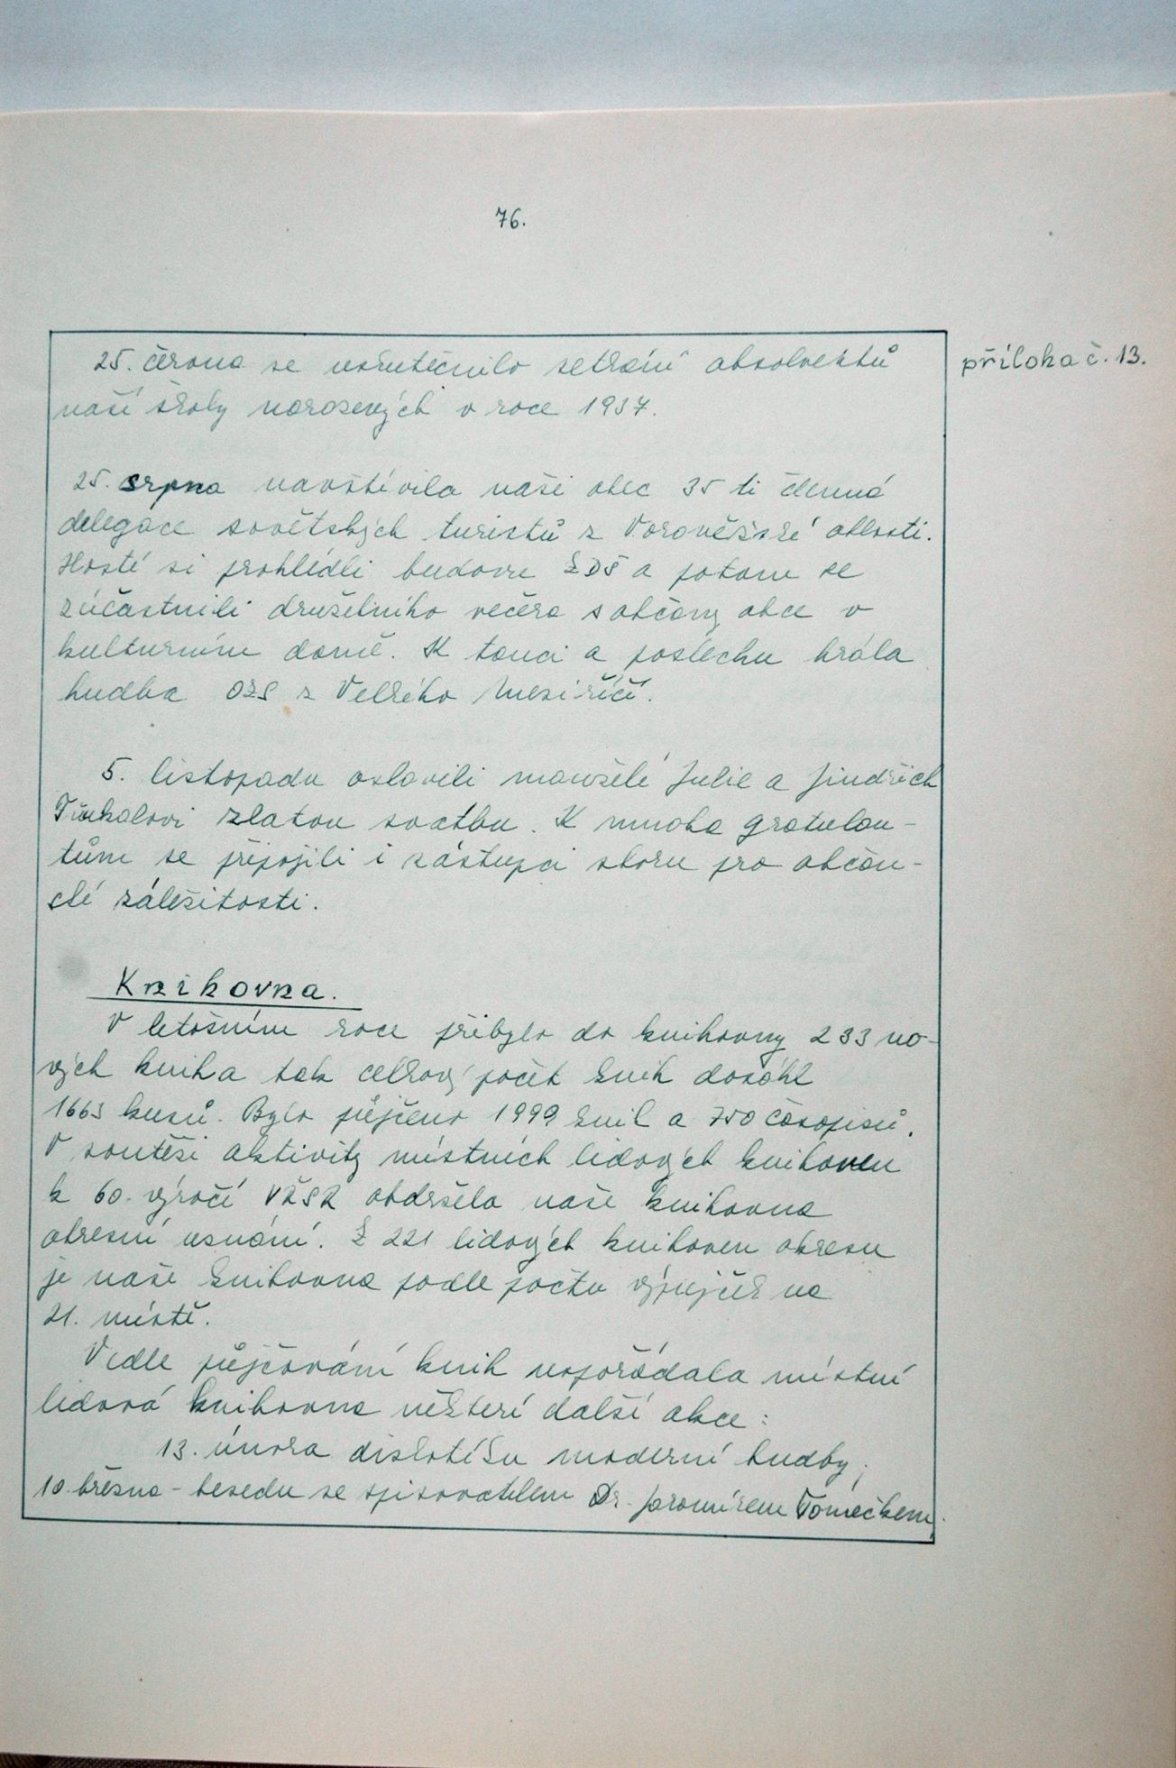 76.
25. června se uskutečnilo setkání absolventů
příloha č. 13.
naší školy narozených v roce 1937.
25. srpna navštívila naši obec 35 ti členná
delegace sovětských turistů z Voroněžské oblasti.
Hosté si prohlédli budovu ZDŠ a potom se
zúčastnili družebního večera s občany obce v
kulturním domě. K tanci a poslechu hrála
hudba OZS z Velkého Meziříčí.
5. listopadu oslavili manželé Julie a Jindřich
zlatou svatbu. K mnoha gratulan-
tům se připojili i zástupci sboru pro občan-
ské záležitosti.
Knihovna.
V letošním roce přibylo do knihovny 233 no-
vých knih a tak celkový počet knih dosáhl
1663 kusů. Bylo půjčeno 1999 knih a 750 časopisů.
V soutěži aktivity místních lidových knihoven
k 60. výročí VŘSR obdržela naše knihovna
okresní uznání. Z 221 lidových knihoven okresu
je naše knihovna podle počtu výpůjček na
21. místě.
Vedle půjčování knih uspořádala místní
lidová knihovna některé další akce:
13. února diskotéku moderní hudby,
10. března - besedu se spisovatelem Dr. Jaromírem Tomečkem,